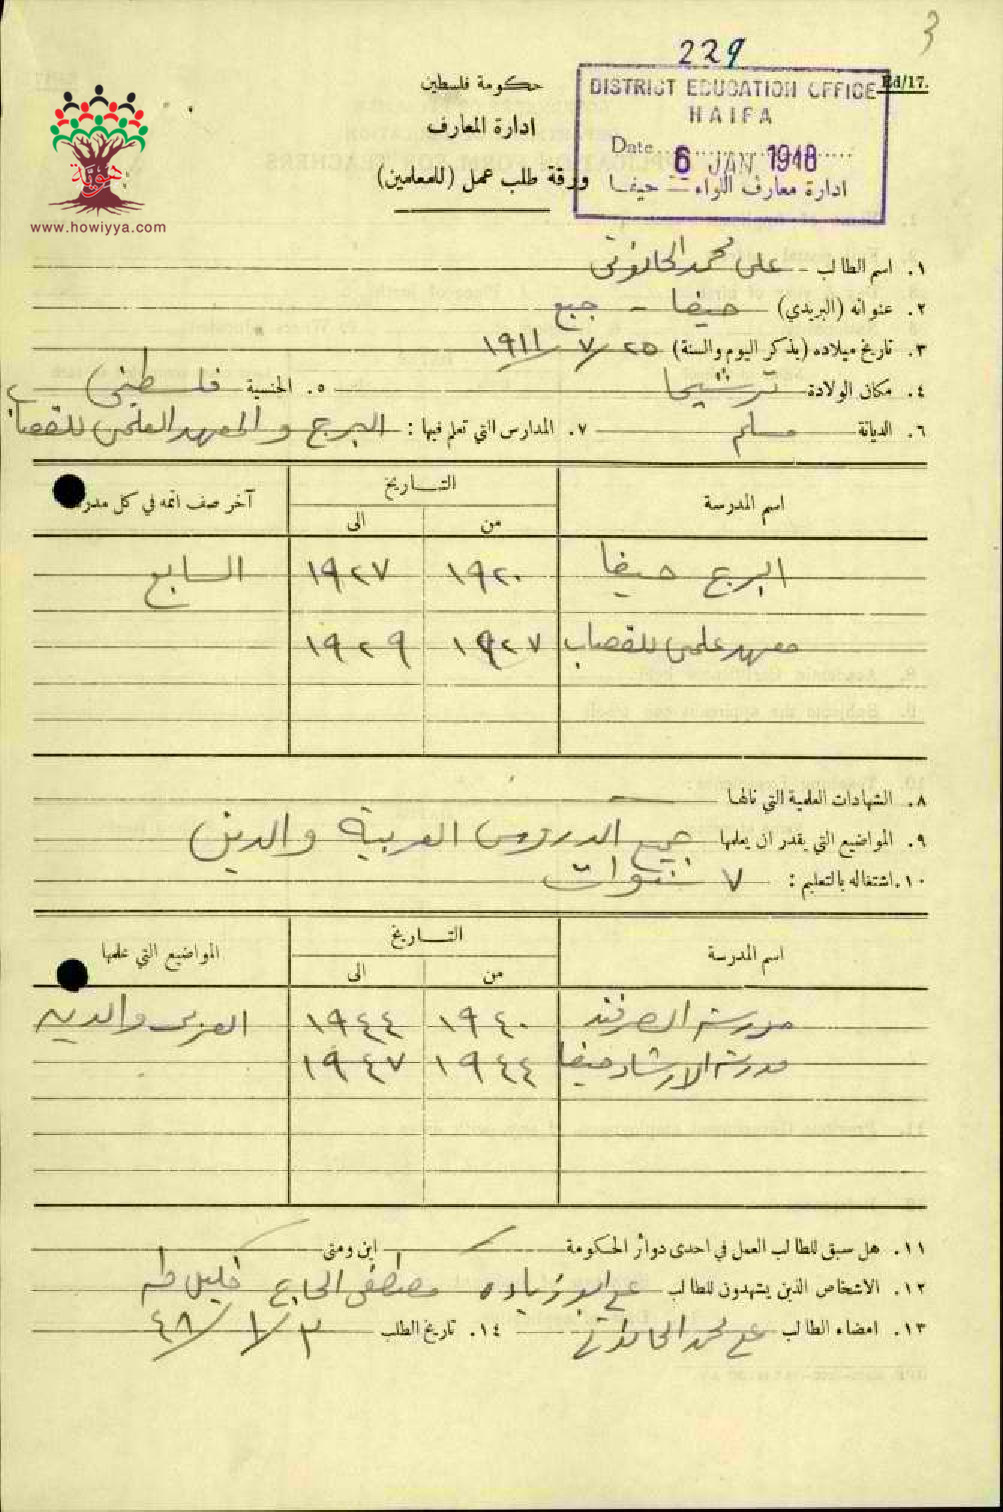 3
229
Ed/17.
حكومة فلسطين
ادارة المعارف
ورقة طلب عمل (للمعلمين)
DISTRICT EDUCATION OFFICE
HAIFA
Date 6 JAN 1948
ادارة معارف اللواء – حيفا
هوية
www.howiyya.com
١. اسم الطالب – علي محمد الحانوتي
٢. عنوانه (البريدي) حيفا – جبع
٣. تاريخ ميلاده (يذكر اليوم والسنة) ٢٥/٧/١٩١١
٤. مكان الولادة ترشيحا ٥. الجنسية فلسطيني
٦. الديانة مسلم ٧. المدارس التي تعلم فيها: البرج والمعهد العلمي للقصاب
اسم المدرسة التـاريخ آخر صف اتمه في كل مدرسة
من الى
البرج حيفا ١٩٢٠ ١٩٢٧ السابع
معهد علمي للقصاب ١٩٢٧ ١٩٢٩
٨. الشهادات العلمية التي نالها —
٩. المواضيع التي يقدر ان يعلمها جميع الدروس العربية والدين
١٠. اشتغاله بالتعليم: ٧ سنوات
اسم المدرسة التـاريخ المواضيع التي علمها
من الى
مدرسة الصرفند ١٩٤٠ ١٩٤٤ العربي والدين
مدرسة الارشاد حيفا ١٩٤٤ ١٩٤٧
١١. هل سبق للطالب العمل في احدى دوائر الحكومة اين ومتى
١٢. الاشخاص الذين يشهدون للطالب علي ابو زياده مصطفى الحاج خليل طه
١٣. امضاء الطالب علي محمد الحانوتي ١٤. تاريخ الطلب ٣/١/٤٨